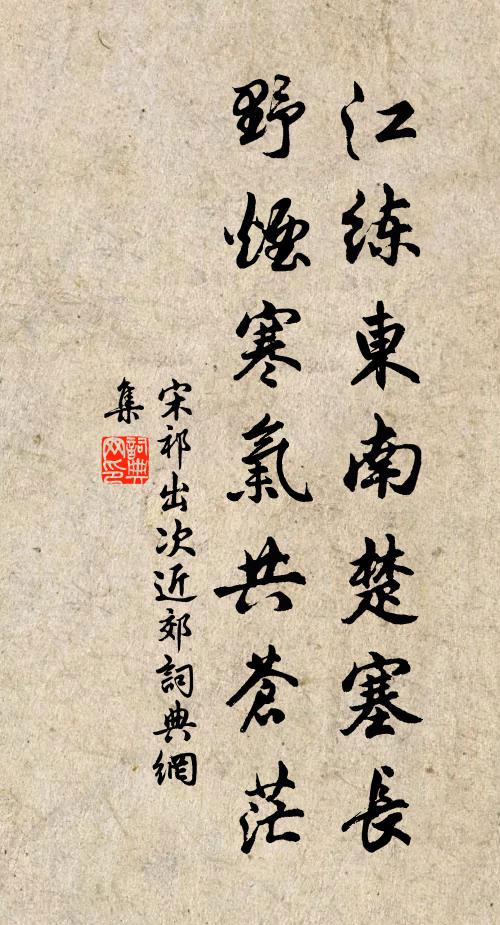 江练東南楚塞長
野煙寒氣共蒼茫
宋祁出次近郊詞典網
集
詞典
网印